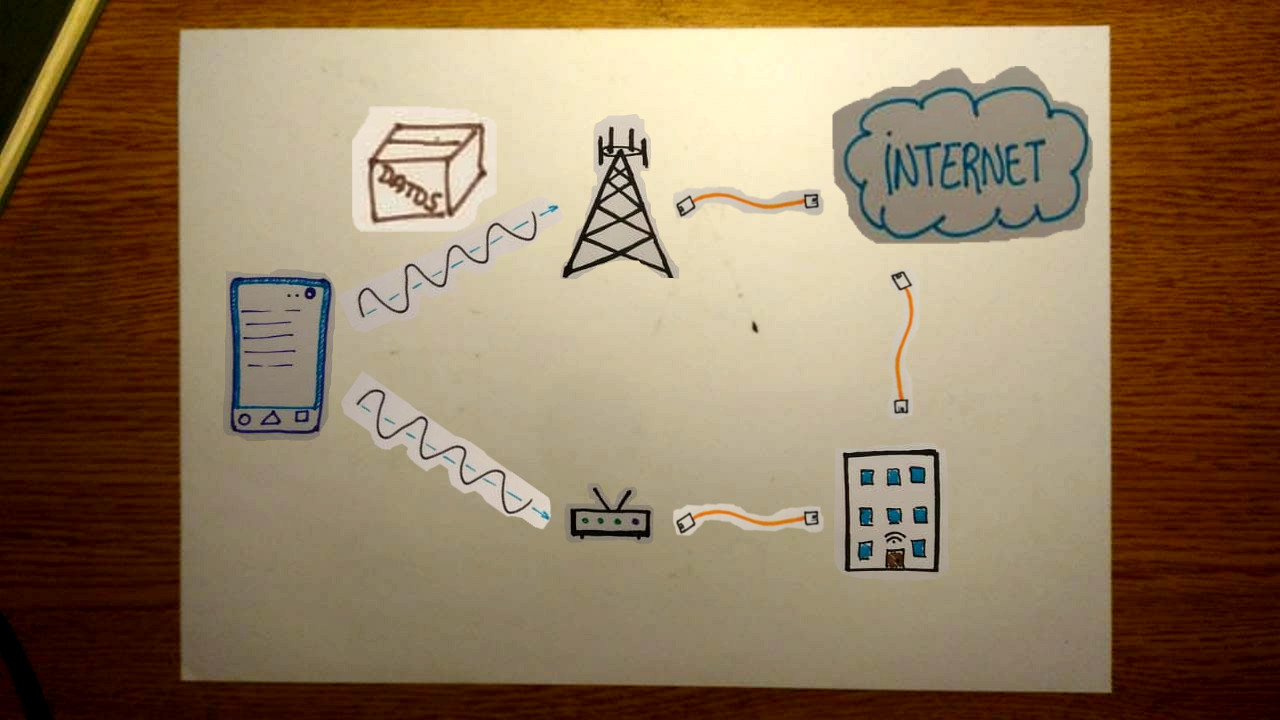 DATOS
INTERNET